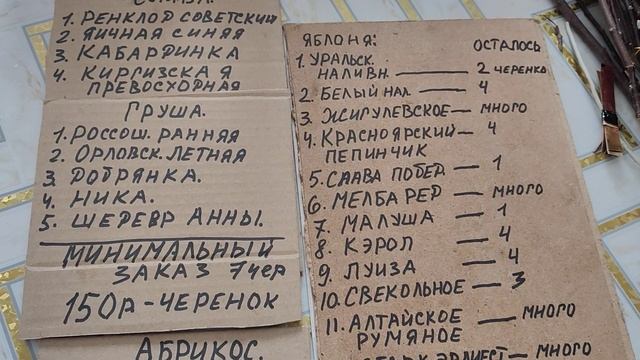 1. РЕНКЛОД СОВЕТСКИЙ
2. ЯИЧНАЯ СИНЯЯ
3. КАБАРДИНКА
4. КИРГИЗСКАЯ
ПРЕВОСХОРНАЯ
ГРУША.
1. РОССОШ. РАННЯЯ
2. ОРЛОВСК. ЛЕТНЯЯ
3. ДОБРЯНКА.
4. НИКА.
5. ШЕРЕВР АННЫ.
МИНИМАЛЬНЫЙ
ЗАКАЗ 7 чер
150р - ЧЕРЕНОК
АБРИКОС.
ЯБЛОНЯ: ОСТАЛОСЬ
1. УРАЛЬСК.
НАЛИВН. — 2 ЧЕРЕНКА
2. БЕЛЫЙ НАЛ. — 4
3. ЖИГУЛЕВСКОЕ — МНОГО
4. КРАСНОЯРСКИЙ — 4
ПЕПИНЧИК
5. СЛАВА ПОБЕД. — 1
6. МЕЛБА РЕД — МНОГО
7. МАЛУША — 1
8. КЭРОЛ — 4
9. ЛУИЗА — 4
10. СВЕКОЛЬНОЕ — 3
11. АЛТАЙСКОЕ — МНОГО
РУМЯНОЕ
МНОГО